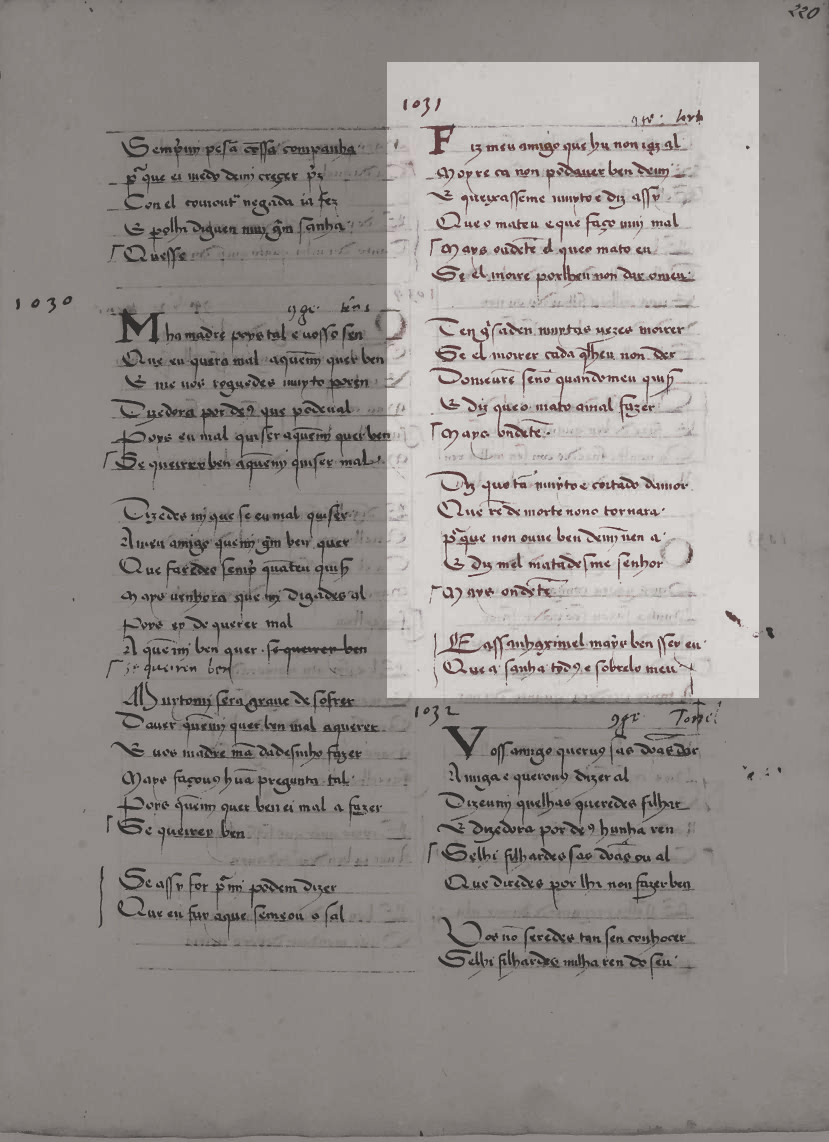 220
Semp̃ mj pesã cõssa companha
p̃ que ei medo demj creçer p̃z
Con el comont negada ia fez
E pollhi diguen muy g̃m sanha
Quesse
1030
Mha madre poys tal e uosso sen
Que eu quera mal aquem̃j quer ben
E me uos roguedes muyto poren
Dizedora por deꝰ que podeual
Poys eu mal quiser aquem̃j quer ben
Se queirer ben aquem̃j quiser mal
Dizedes mj que se eu mal quiser
Ameu amigo quemj g̃m ben quer
Que faredes semp̃ quãteu quis̃
Mays uenhora que mj digades al
Poys ey de querer mal
A quemj ben quer se queirer ben
se queiren ben
Muytomj sera graue de sofrer
Dauer quẽmj quer ben mal aquerer
E uos madre mãdadesmho fazer
Mays façouꝰ hũa pregunta tal
Poys quẽmj quer ben ei mal a fazer
Se queirer ben
Se assy for p̃mj podem dizer
Que eu fuy aque semeou o sal
1031
Fiz meu amigo que hu non iaz al
Moyre ca non podauer ben demj
E queixasseme muyto e diz assy
Que o mateu e que faço mui mal
Mays ondetẽ el queo mato eu
Se el moire porlheu non dar omeu
Ten g̃ saden muytas uezes moirer
Se el moirer cada q̃lheu non der
Domeu rẽ senõ quandomeu quis̃
E diz queo mato amal fazer
Mays ondetẽ
Diz quo tã muyto e coitado damor
Que rẽ de morte nono tornara
p̃ que non ouue ben demj nen a
E diz mel matadesme senhor
Mays ondetẽ
E assanhaximel mayꝰ ben ssey eu
Que a sanha todꝰ e sobrelo meu
1032
Vossamigo queruꝰ sas doas dar
Amiga e querouꝰ dizer al
Dizeumj quelhas queredes filhar
E dizedora por deꝰ hunha ren
Selhi filhardes sas dõas ou al
Que diredes por lhi non fazer ben
Vos nõ seredes tan sen conhocer
Selhi filhardes nulha ren do seu